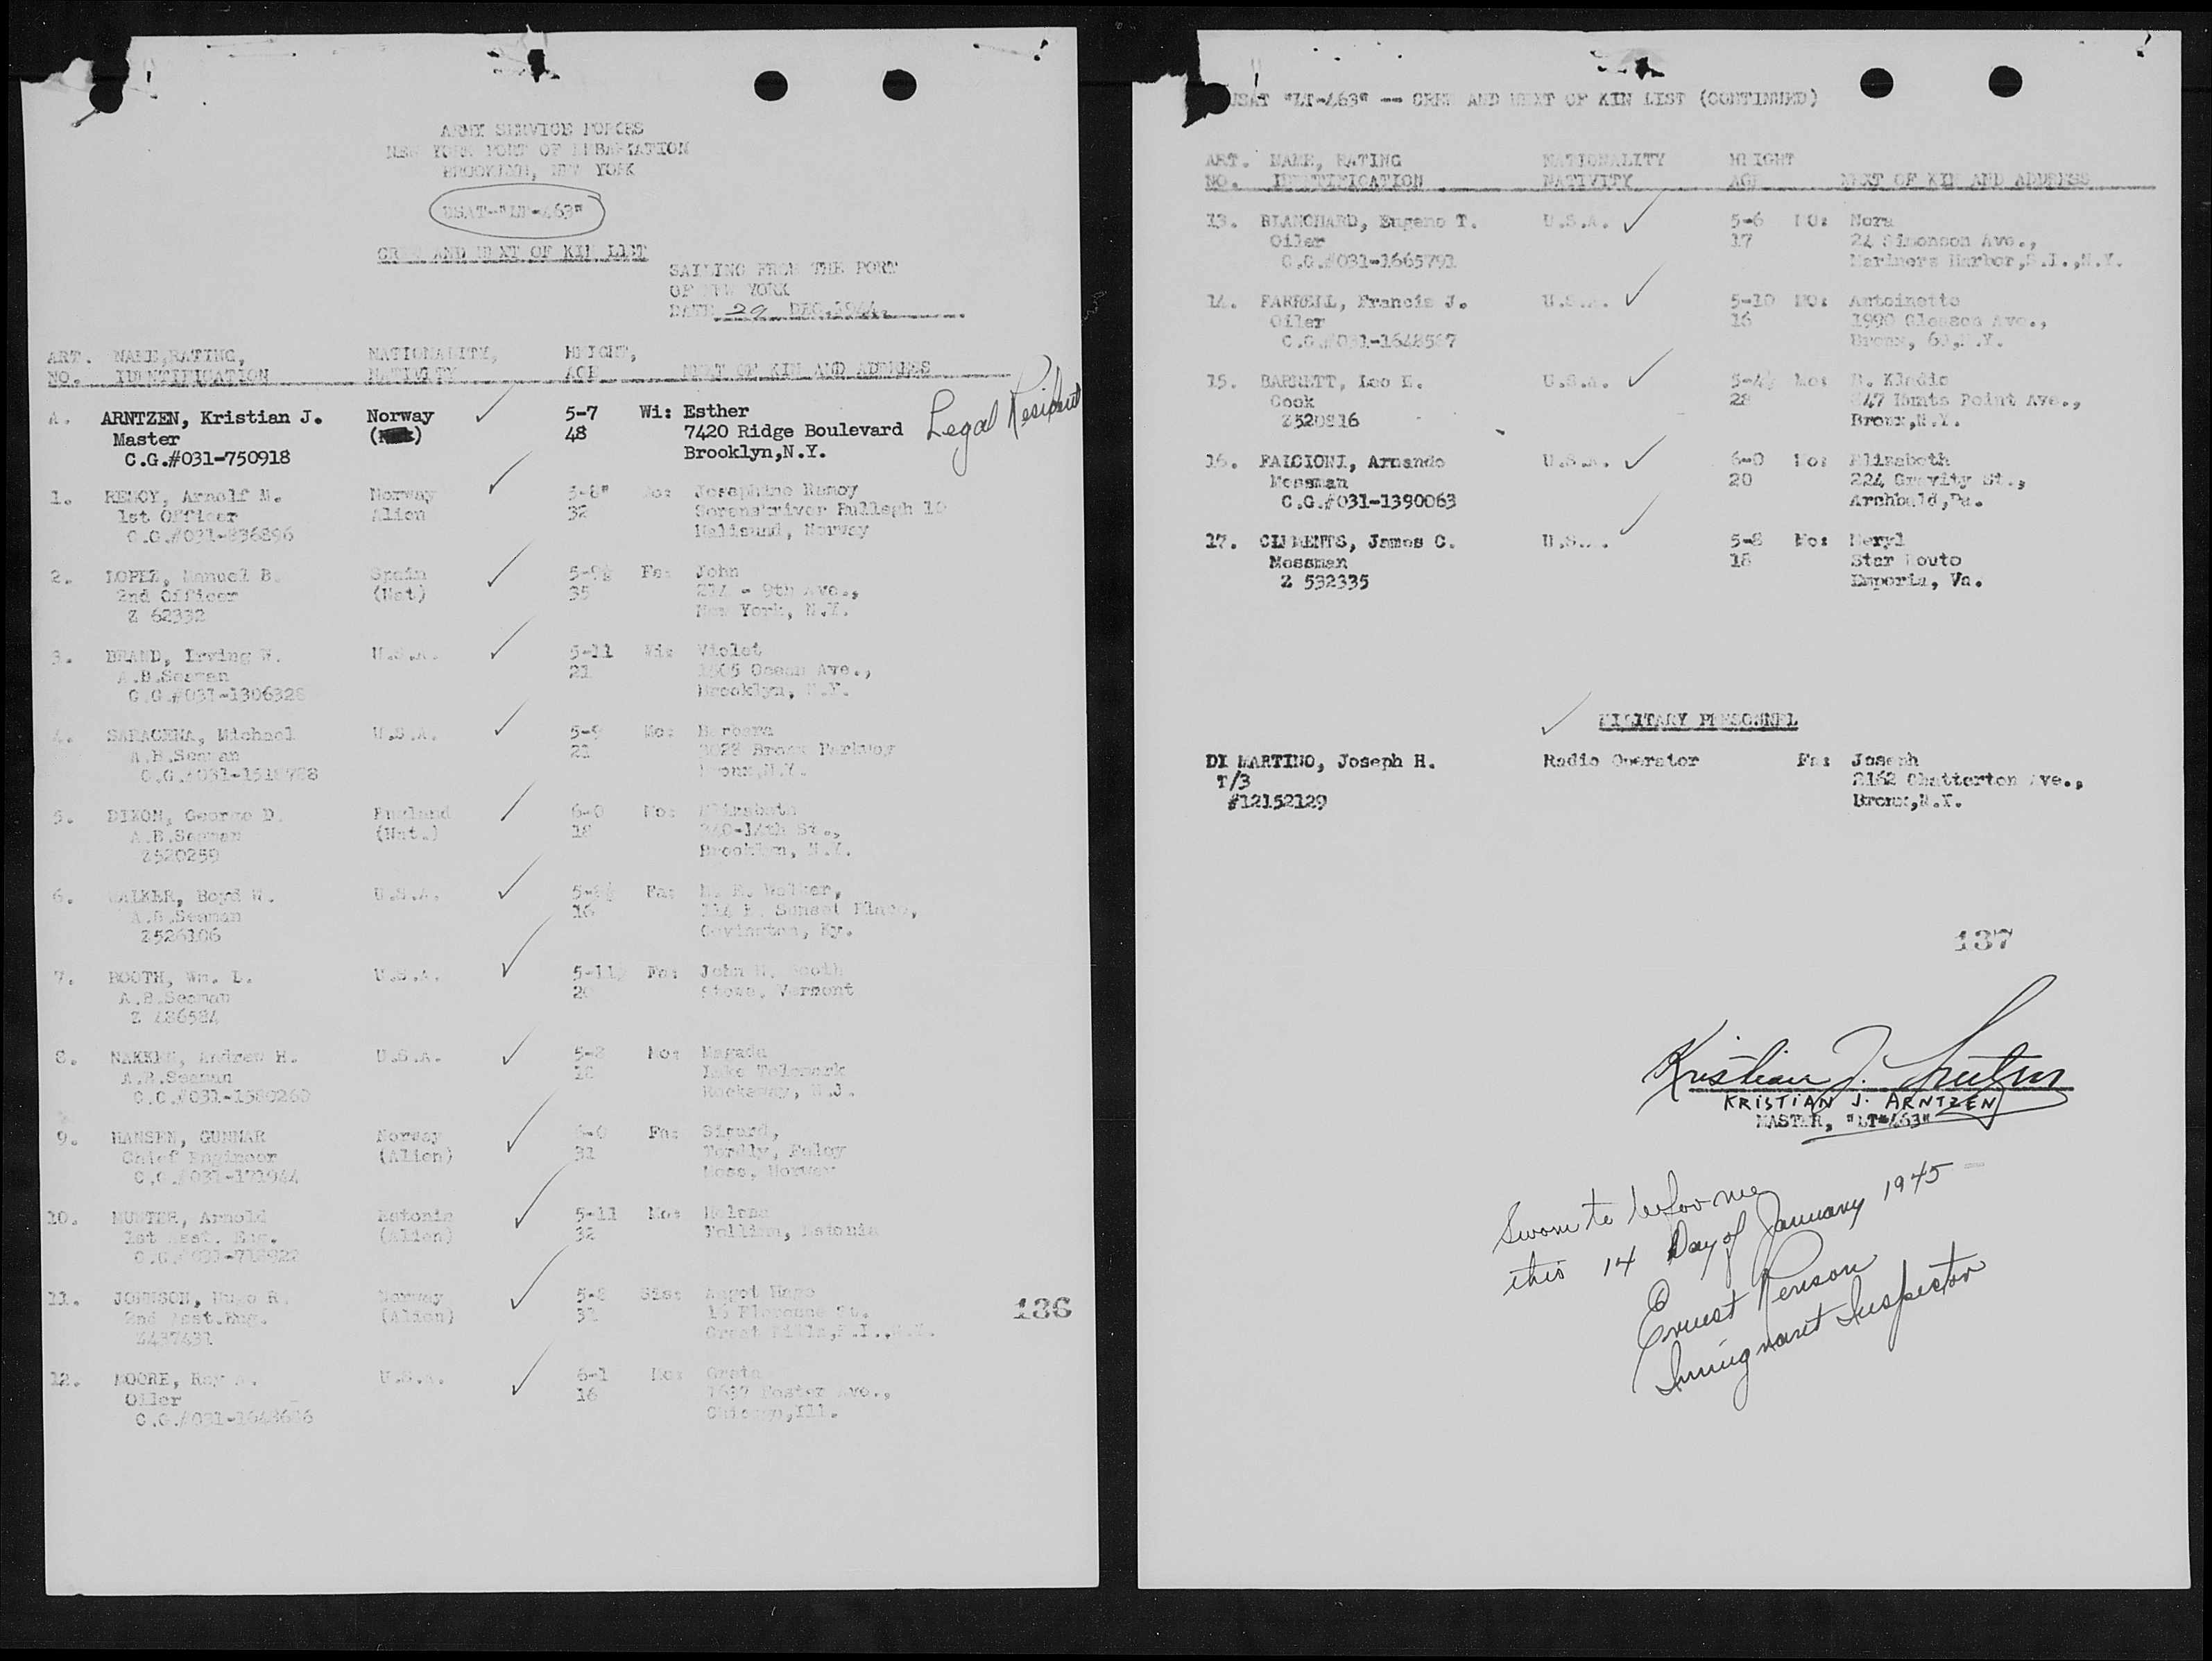 ARMY SERVICE FORCES
NEW YORK PORT OF EMBARKATION
BROOKLYN, NEW YORK
USAT-"LT-463"
CREW AND NEXT OF KIN LIST
SAILING FROM THE PORT
OF NEW YORK
DATE 29 DEC, 1944.
ART. NAME, RATING, NATIONALITY, HEIGHT,
NO. IDENTIFICATION NATIVITY AGE NEXT OF KIN AND ADDRESS
A. ARNTZEN, Kristian J. Norway 5-7 Wi: Esther Legal Resident
Master 48 7420 Ridge Boulevard
C.G.#031-750918 Brooklyn,N.Y.
1. REMOY, Arnolf M. Norway 5-8" Josephine Remoy
1st Officer Alien 32
C.G.#031-836896 Norway
2. LOPEZ, Manuel B. Spain 5-9½ Fa: John
2nd Officer (Nat) 35 - 9th Ave.,
Z 62332 New York, N.Y.
3. BRAND, Irving W. U.S.A. 5-11 Wi: Violet
A.B.Seaman 21 Ocean Ave.,
C.G.#031-1306328 Brooklyn, N.Y.
4. SARACENA, Michael U.S.A. 5-9 Mo: Barbara
A.B.Seaman 21 Bronx Parkway
Bronx,N.Y.
5. DIXON, George D. England 6-0 Mo: Elizabeth
A.B.Seaman (Nat.) 18 St.,
Z520259 Brooklyn, N.Y.
6. WALKER, Boyd W. U.S.A. Fa: Walker,
A.B.Seaman 16 Sunset Place,
Z526106 Covington, Ky.
7. BOOTH, Wm. L. U.S.A. 5-11½ Fa: John Booth
A.B.Seaman 20 Stowe, Vermont
Z 486584
8. NAKKEN, Andrew H. U.S.A. Mo: Magada
A.B.Seaman 18 Lake Telemark
Rockaway, N.J.
9. HANSEN, GUNNAR Norway 6-0 Fa: Sigurd,
Chief Engineer (Alien) 31
C.G.#031-171944 Moss, Norway
10. Arnold Estonia 5-11 Mo: Helena
1st Asst. Eng. (Alien) 32 Tallinn, Estonia
11. JOHNSON, Hugo R. Norway 5-8 Sis:
2nd Asst.Eng. (Alien) 31 St.
Z437431 Great Kills,S.I.,N.Y.
136
12. MOORE, Ray U.S.A. 6-1 Mo: Greta
Oiler 16 Foster Ave.,
Chicago,Ill.
USAT "LT-463" -- CREW AND NEXT OF KIN LIST (CONTINUED)
ART. NAME, RATING NATIONALITY HEIGHT
NO. IDENTIFICATION NATIVITY AGE NEXT OF KIN AND ADDRESS
13. BLANCHARD, Eugene T. U.S.A. 5-6 MO: Nora
Oiler 17 24 Simonson Ave.,
C.G.#031-1665791 Mariners Harbor,S.I.,N.Y.
14. FARRELL, Francis J. U.S.A. 5-10 MO: Antoinette
Oiler 16 1990 Gleason Ave.,
C.G.#031-1648587 Bronx, N.Y.
15. BARNETT, Leo E. U.S.A. 5-4½ Mo:
Cook 28 Hunts Point Ave.,
Z520816 Bronx,N.Y.
16. FALCIONI, Armando U.S.A. 6-0 Mo: Elizabeth
Messman 20 224 Gravity St.,
C.G.#031-1390063 Archbald,Pa.
17. CLEMENTS, James C. U.S.A. 5-8 Mo: Meryl
Messman 18 Star Route
Z 532335 Emporia, Va.
MILITARY PERSONNEL
DI MARTINO, Joseph H. Radio Operator Fa: Joseph
T/3 2162 Chatterton Ave.,
#12152129 Bronx,N.Y.
137
Kristian J. Arntzen
KRISTIAN J. ARNTZEN
MASTER, "LT-463"
Sworn to before me
this 14 Day of January 1945
Ernest Renson
Immigrant Inspector